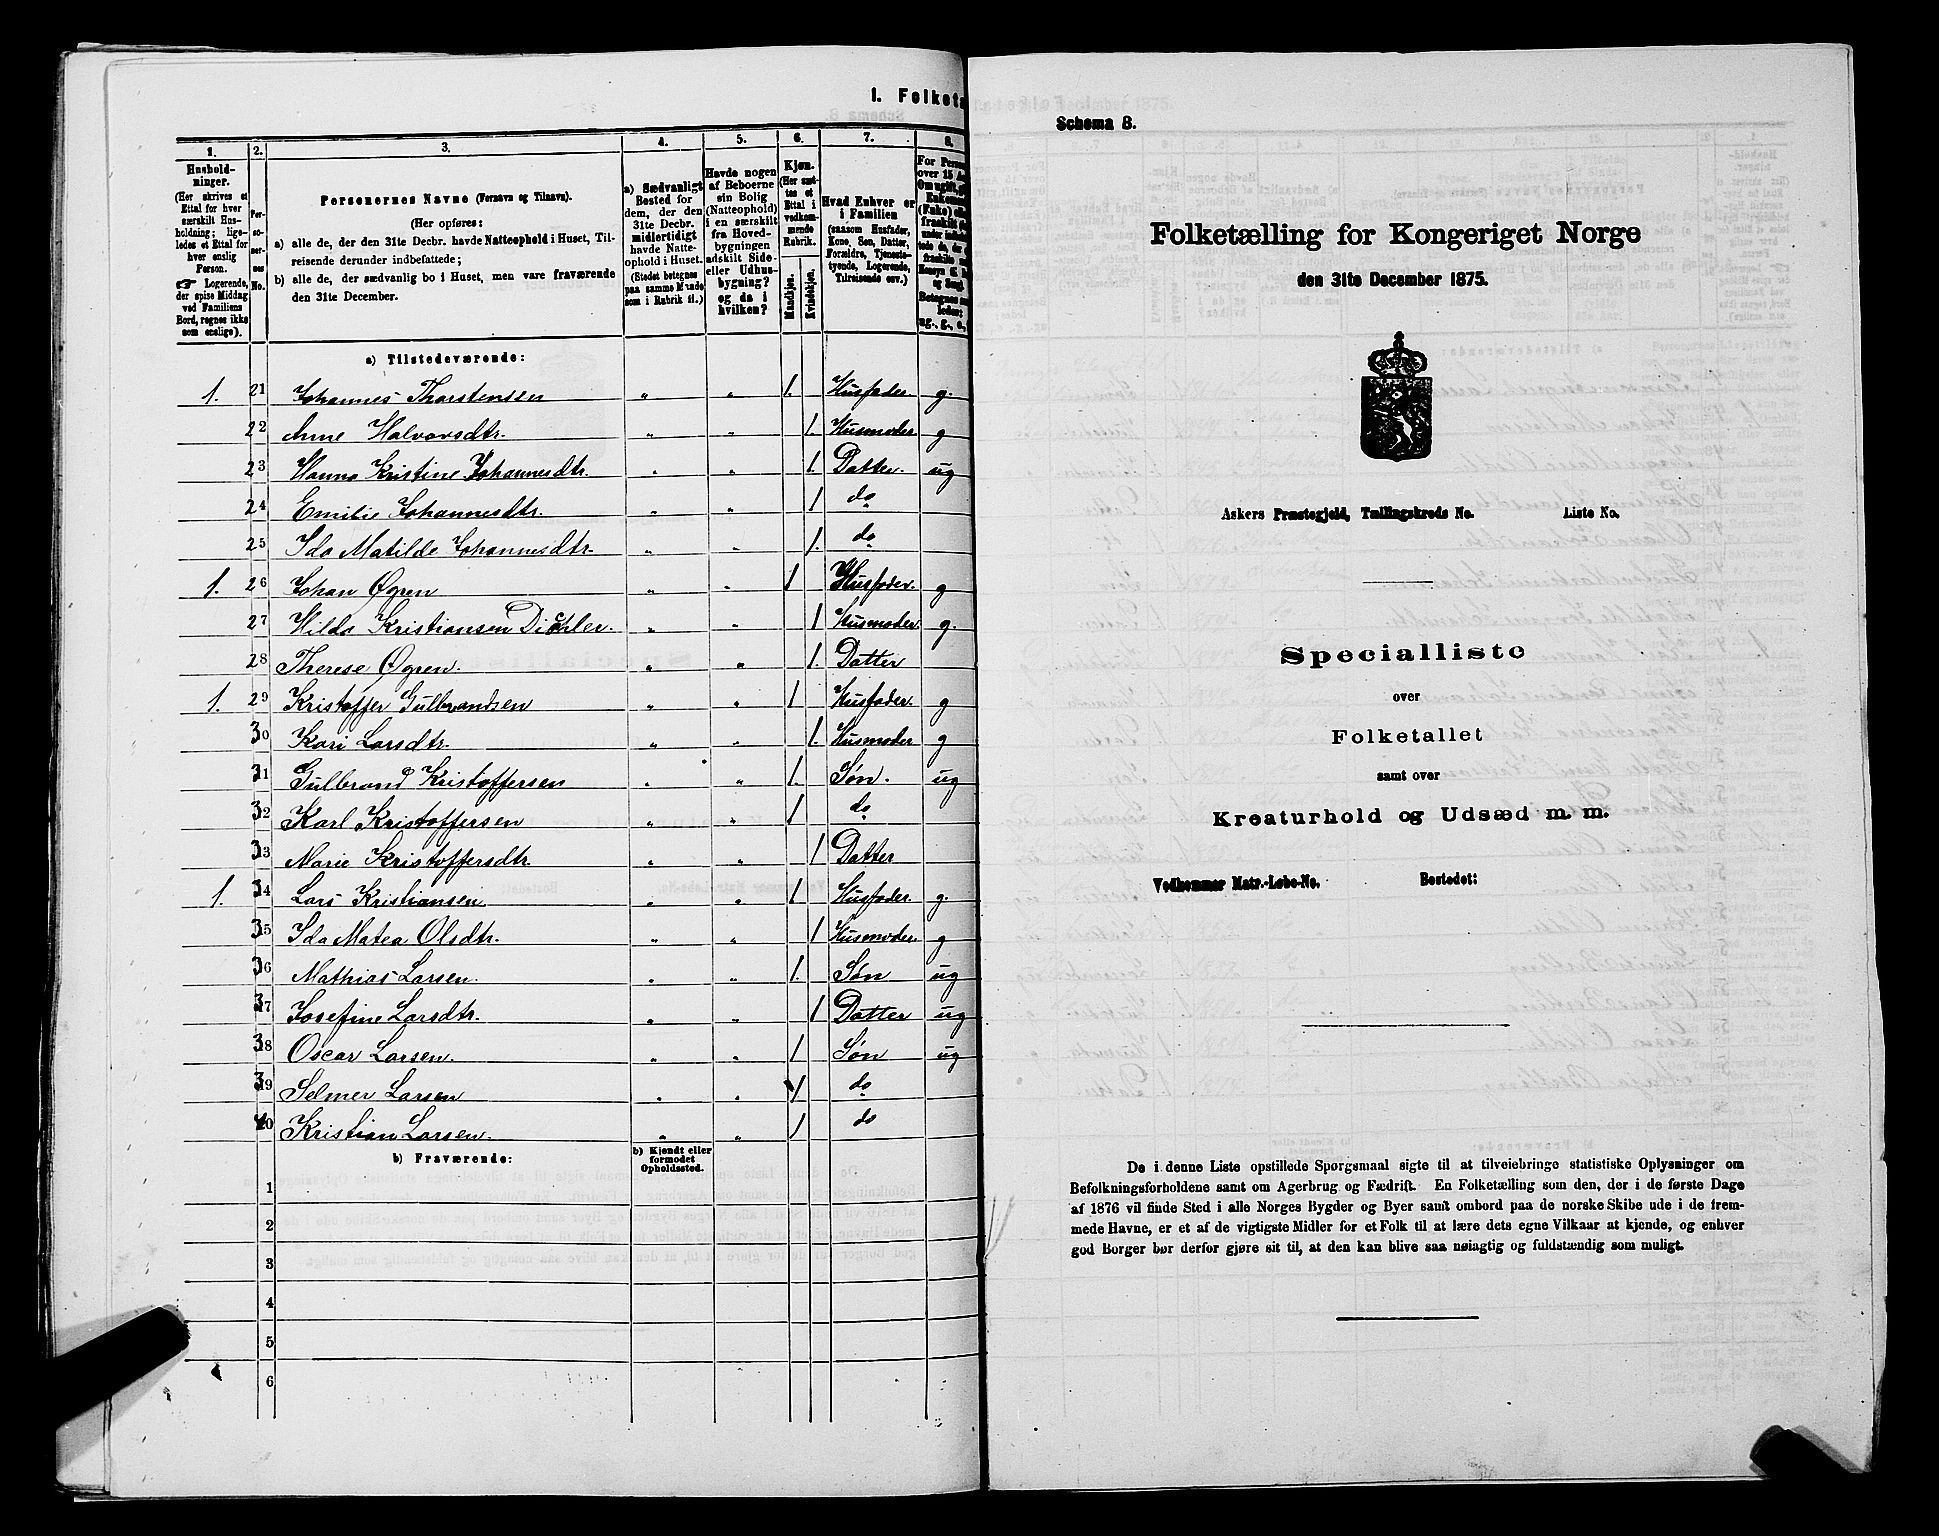 I. Folketa
1.
2.
3.
4.
5.
6.
7.
8.
Hushold-
ninger.
(Her skrives et
Ettal for hver
særskilt Hus-
holdning; lige-
ledes et Ettal for
hver enslig
Person.
☞ Logerende,
der spise Middag
ved Familiens
Bord, regnes ikke
som enslige).
Per-
so-
ner-
nes
No.
Personernes Navne (Fornavn og Tilnavn).
(Her opføres:
a) alle de, der den 31te Decbr. havde Natteophold i Huset, Til-
reisende derunder indbefattede;
b) alle de, der sædvanlig bo i Huset, men vare fraværende
den 31te December.
a) Sædvanligt
Bosted for
dem, der den
31te Decbr.
midlertidigt
havde Natte-
ophold i Huset.
(Stedet betegnes
paa samme Maade
som i Rubrik 11.)
Havde nogen
af Beboerne
sin Bolig
(Natteophold)
i en særskilt
fra Hoved-
bygningen
adskilt Side-
eller Udhus-
bygning?
og da i
hvilken?
Kjøn.
(Her sæt-
tes et
Ettal i
vedkom-
mende
Rubrik.
Mandkjøn.
Kvindekjøn.
Hvad Enhver er
i Familien
(saasom Husfader,
Kone, Søn, Datter,
Forældre, Tjeneste-
tyende, Logerende,
Tilreisende osv.)
For Person
over 15 Aa
Om ugift, g
Enkema
(Enke) elle
fraskilt
a) Tilstedeværende:
1. 21 Johannes Thorstensen " " 1. Husfader g.
22 Anne Halvorsdtr. " " 1. Husmoder g
23 Hanna Kristine Johannesdtr. " " 1 Datter. ug
24 Emilie Johannesdtr. " " 1 do
25 Ida Matilde Johannesdtr. " " 1. do
1. 26 Johan Øgren " " 1 Husfader. g
27 Hilda Kristiansen Dichler. " " 1 Husmoder. g.
28 Therese Øgren. " " 1. Datter
1. 29 Kristoffer Gulbrandsen " " 1 Husfader. g
30 Kari Larsdtr. " " 1. Husmoder g
31 Gulbrand Kristoffersen " " 1. Søn. ug
32 Karl Kristoffersen " " 1 do
33 Marie Kristoffersdtr. " " 1 Datter
1. 34 Lars Kristiansen. " " 1 Husfader. g.
35 Ida Matea Olsdtr. " " 1 Husmoder. g
36 Mathias Larsen. " " 1. Søn ug
37 Josefine Larsdtr. " " 1 Datter ug
38 Oscar Larsen. " " 1 Søn ug
39 Selmer Larsen " " 1 do
40 Kristian Larsen. " " 1 do
b) Fraværende:
b) Kjendt eller
formodet
Opholdssted.
1
2
3
4
5
6
Schema 8.
Folketælling for Kongeriget Norge
den 31te December 1875.
Askers Præstegjeld, Tællingskreds No. Liste No.
Specialliste
over
Folketallet
samt over
Kreaturhold og Udsæd m. m.
Vedkommer Matr.-Løbe-No. Bostedet:
De i denne Liste opstillede Spørgsmaal sigte til at tilveiebringe statistiske Oplysninger om
Befolkningsforholdene samt om Agerbrug og Fædrift. En Folketælling som den, der i de første Dage
af 1876 vil finde Sted i alle Norges Bygder og Byer samt ombord paa de norske Skibe ude i de frem-
mede Havne, er et af de vigtigste Midler for et Folk til at lære dets egne Vilkaar at kjende, og enhver
god Borger bør derfor gjøre sit til, at den kan blive saa nøiagtig og fuldstændig som muligt.